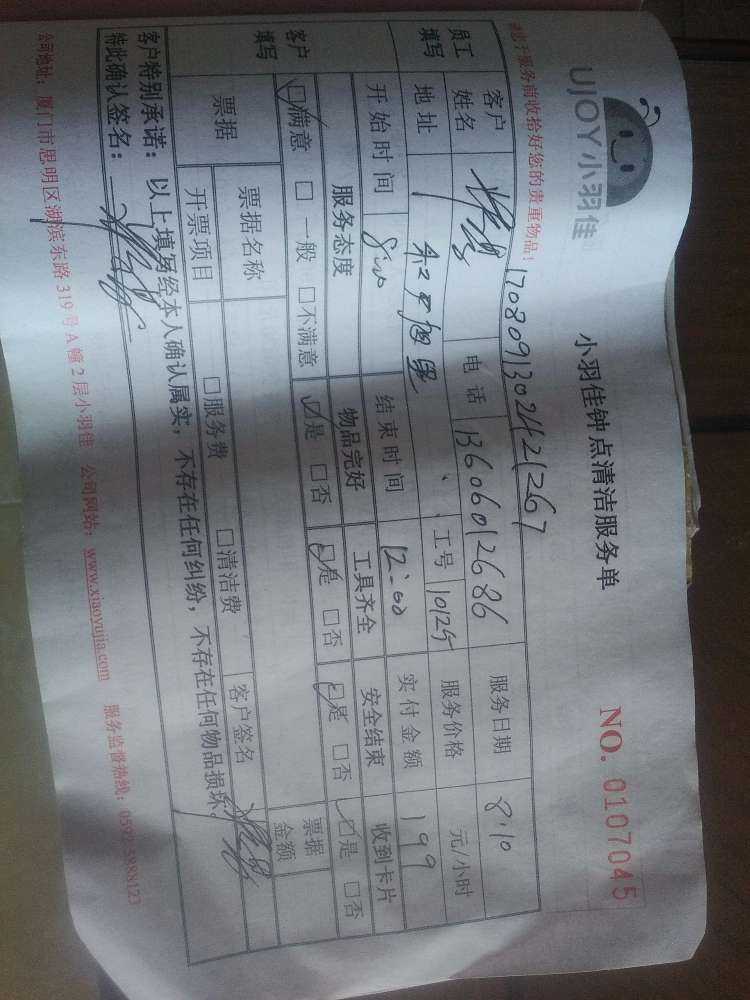 UJOY小羽佳
小羽佳钟点清洁服务单
NO. 0107045
请您于服务前收拾好您的贵重物品！
员工填写
客户姓名
电话 13606012686
服务日期 8.10
地址
工号 10125
服务价格 元/小时
开始时间 8:00
结束时间 12:00
实付金额 199
客户填写
服务态度 物品完好 工具齐全 安全结束 收到卡片
☑满意 □一般 □不满意 ☑是 □否 ☑是 □否 ☑是 □否 ☑是 □否
票据
票据名称
票据金额
开票项目 □服务费 □清洁费 客户签名
客户特别承诺：以上填写经本人确认属实，不存在任何纠纷，不存在任何物品损坏。
特此确认签名：
公司地址：厦门市思明区湖滨东路319号A幢2层小羽佳 公司网站：www.xiaoyujia.com 服务监督热线：0592-5888123